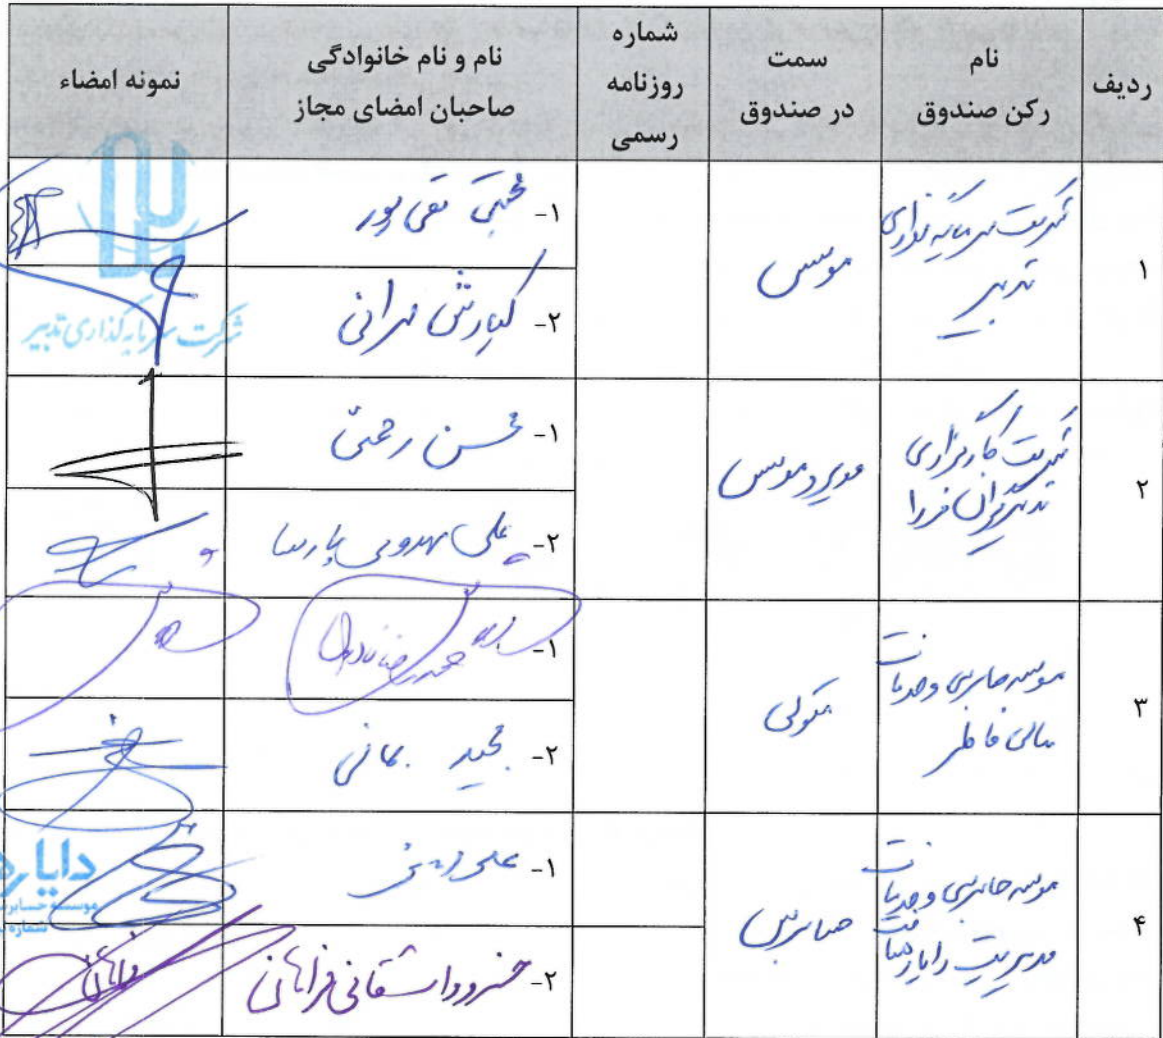 ردیف
نام
رکن صندوق
سمت
در صندوق
شماره
روزنامه
رسمی
نام و نام خانوادگی
صاحبان امضای مجاز
نمونه امضاء
۱
شرکت سرمایه گذاری
تدبیر
موسس
۱- مجتبی تقی پور
۲- کیارش مهرانی
شرکت سرمایه گذاری تدبیر
۲
شرکت کارگزاری
تدبیرگران فردا
مدیر و موسس
۱- محسن رحمتی
۲- علی مهدوی پارسا
۳
موسسه حسابرسی و خدمات
مالی فاطر
متولی
۱-
۲- مجید بمانی
۴
موسسه حسابرسی و خدمات
مدیریت دایا رهیافت
حسابرس
۱- علی
۲- خسرو واشقانی فراهانی
دایا
موسسه
شماره